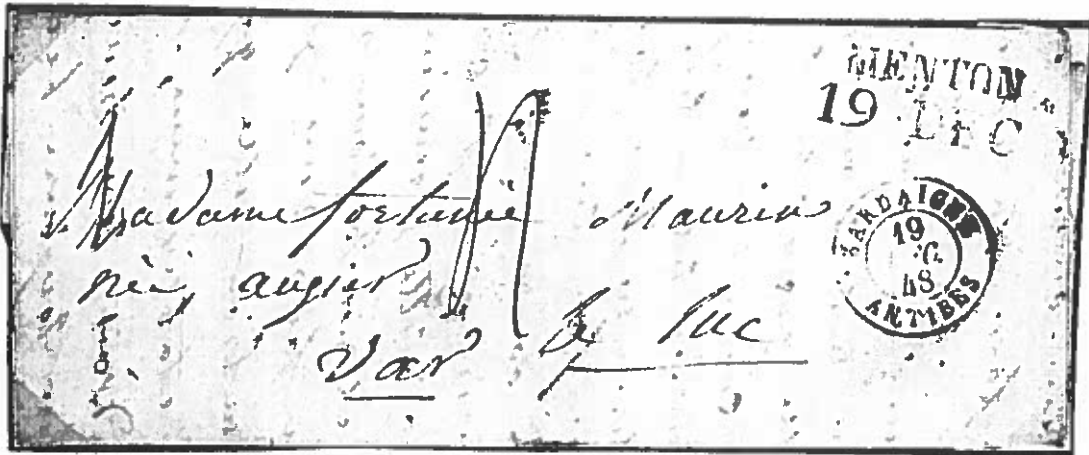 MENTON
19 DEC
Madame fortunée Maurin
née, augier
Var le luc
SARDAIGNE
19
48
ANTIBES